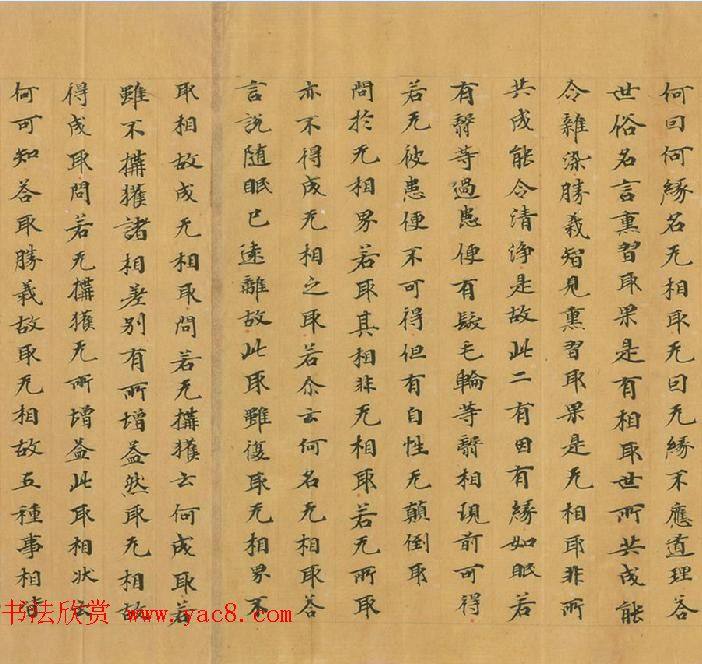 何囙何緣名无相取无囙无緣不應道理荅
世俗名言熏習取果是有相取世所共成能
令雜染勝義智見熏習取果是无相取非所
共成能令清淨是故此二有因有緣如眼若
有翳等過患便有髮毛輪等翳相現前可得
若无彼患便不可得但有自性无顛倒取
問於无相界若取其相非无相取若无所取
亦不得成无相之取若尒云何名无相取荅
言說随眠已遠離故此取雖復取无相界不
取相故成无相取問若无搆獲云何成取荅
雖不搆獲諸相差別有所增益然取无相故
得成取問若无搆獲无所增益此取相狀云
何可知荅取勝義故取无相故五種事相
书法欣赏 www.yac8.com